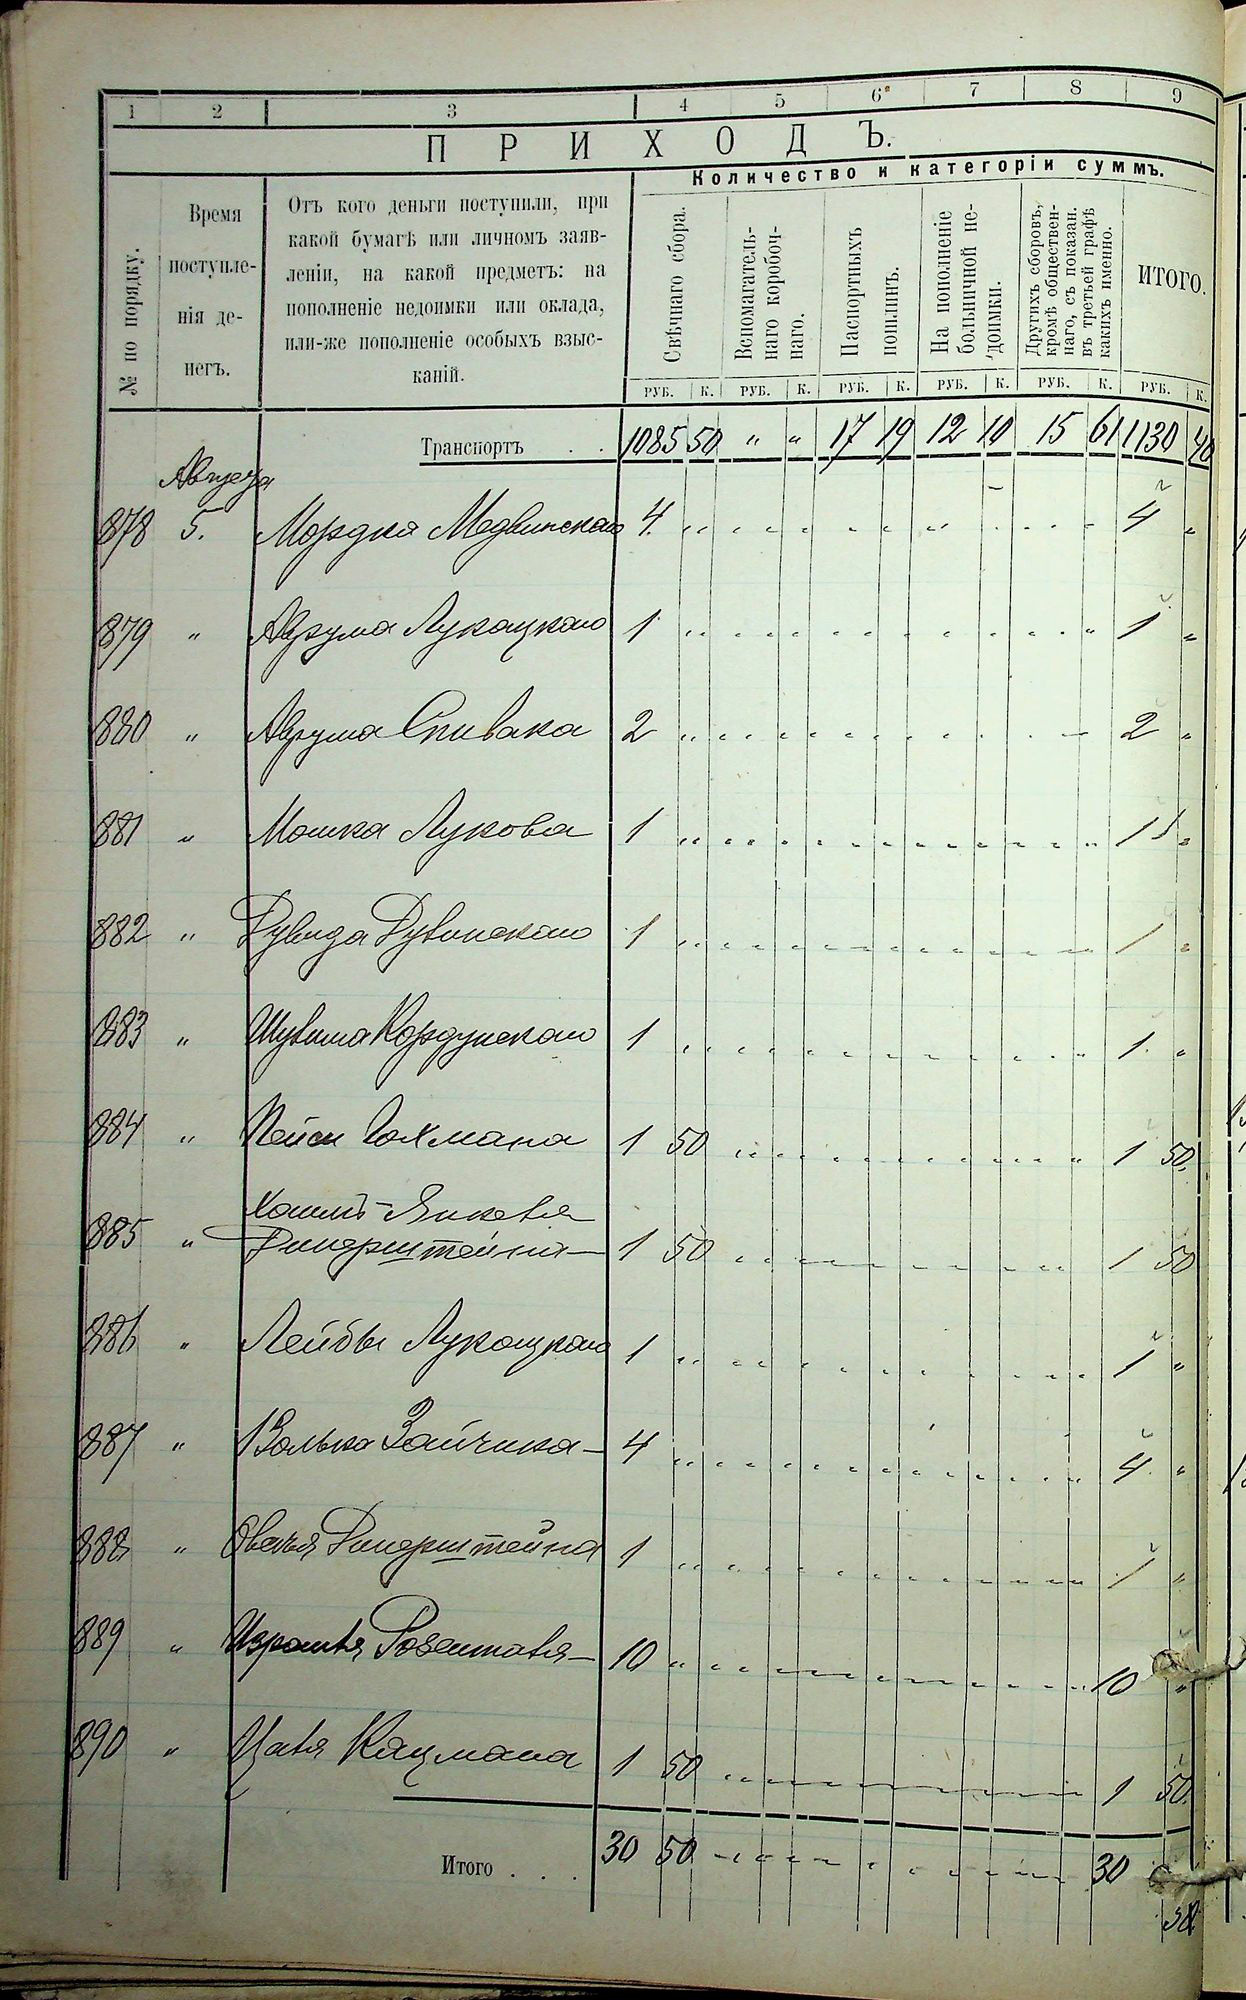 1 2 3 4 5 6 7 8 9
ПРИХОДЪ.
Количество и категоріи суммъ.
№ по порядку.
Время
поступле-
нія де-
негъ.
Отъ кого деньги поступили, при
какой бумагѣ или личномъ заяв-
леніи, на какой предметъ: на
пополненіе недоимки или оклада,
или-же пополненіе особыхъ взыс-
каній.
Свѣчнаго сбора.
Вспомагатель-
наго коробоч-
наго.
Паспортныхъ
пошлинъ.
На пополненіе
больничной не-
доимки.
Другихъ сборовъ,
кромѣ обществен-
наго, съ показан.
въ третьей графѣ
какихъ именно.
ИТОГО.
РУБ. К. РУБ. К. РУБ. К. РУБ. К. РУБ. К. РУБ. К.
Транспортъ . . 1085 50 " " 17 19 12 10 15 61 1130 40
Августа
878 5. Мордка Медвинскаго 4 " 4 "
879 " Аврума Лукацкаго 1 " 1 "
880 " Аврума Спивака 2 " 2 "
881 " Мошка Лукова 1 " 1 "
882 " Дувида Дувинскаго 1 " 1 "
883 " Кордунскаго 1 " 1 "
884 " Пейси Гохмана 1 50 " 1 50
885 " Янкеля
Динерштейна 1 50 " 1 50
886 " Лейбы Лукацкаго 1 " 1 "
887 " Волька Зайчика 4 " 4 "
888 " Овсея Динерштейна 1 " 1 "
889 " Израиля Розенталя 10 " 10 "
890 " Кацмана 1 50 " 1 50
Итого . . . 30 50 30
50